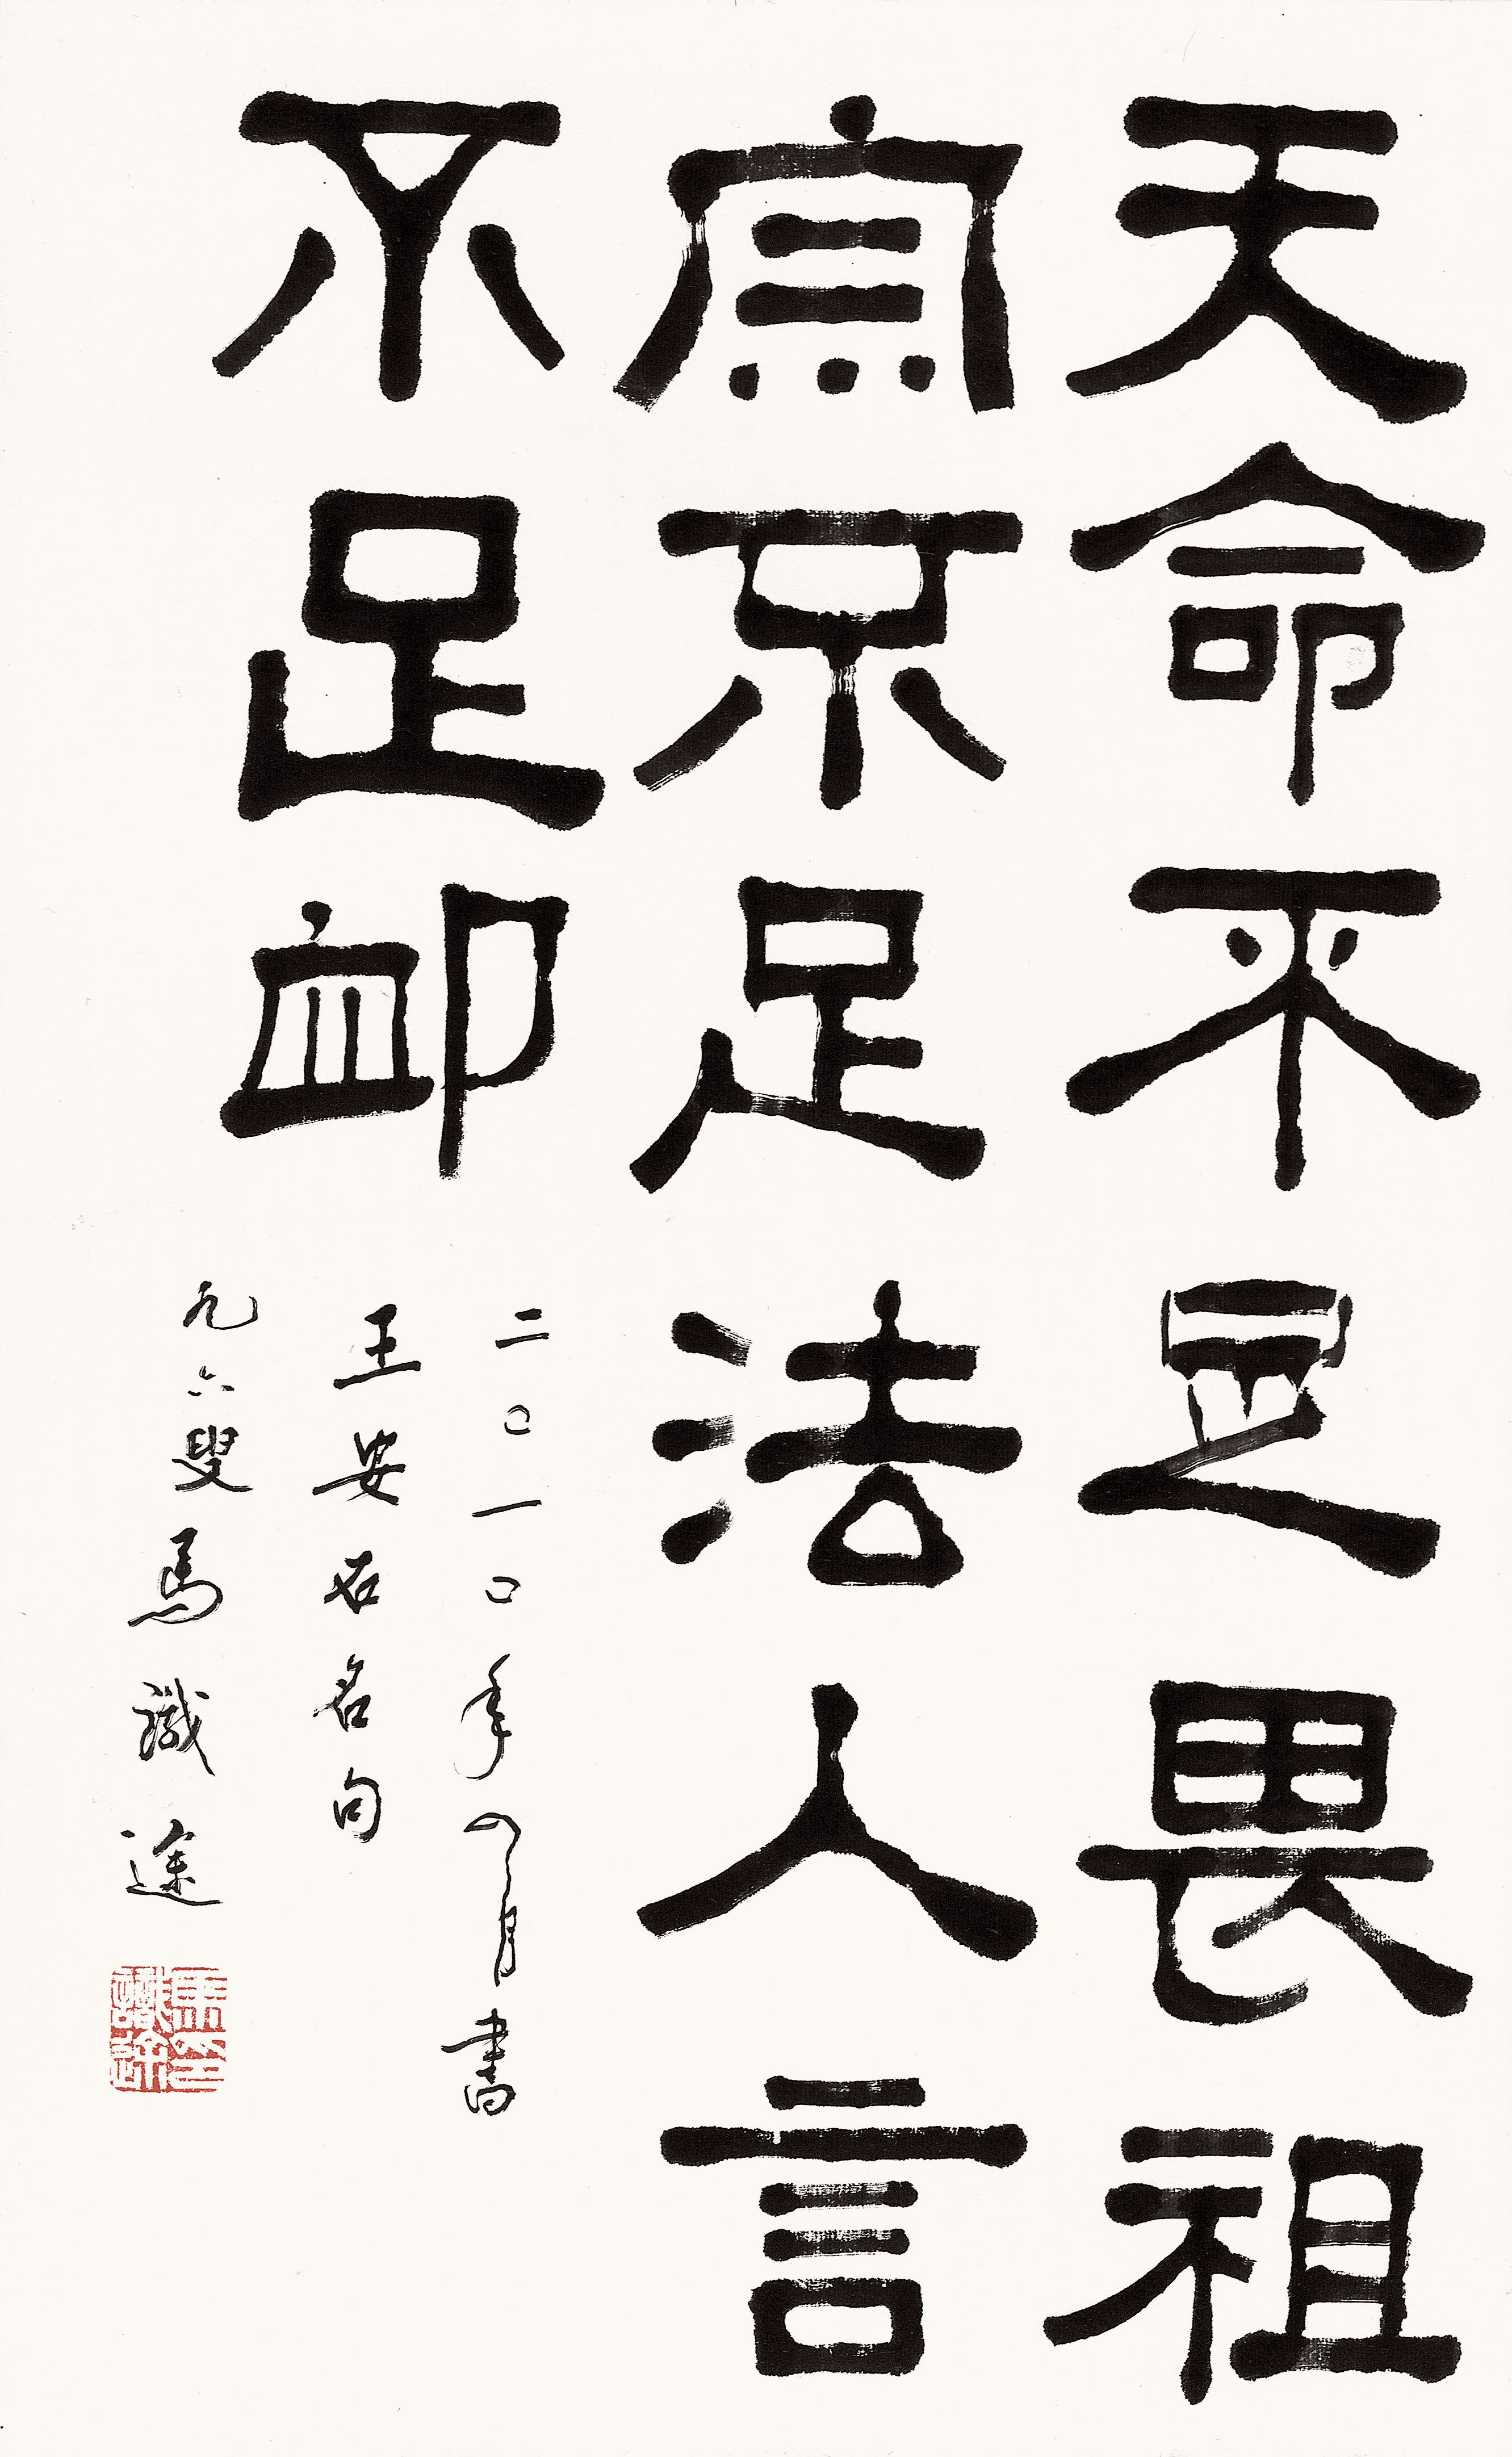 天命不足畏祖
宗不足法人言
不足卹
二〇一〇年八月書
王安石名句
九六叟馬識途